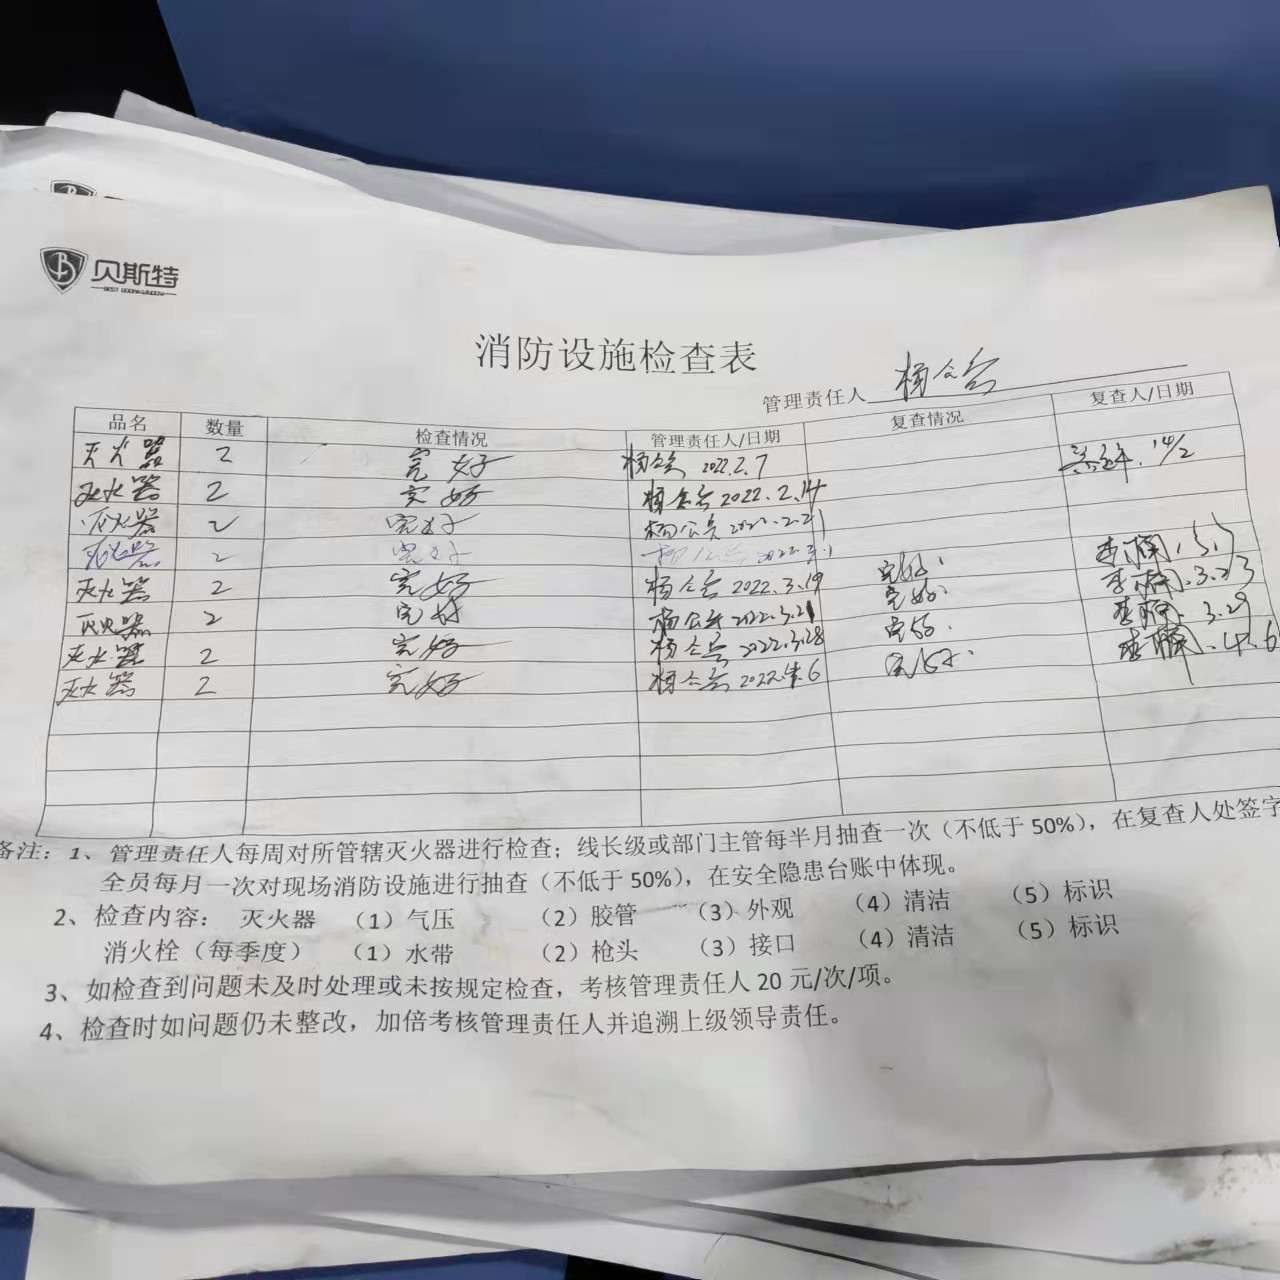 贝斯特
消防设施检查表
管理责任人
品名 数量 检查情况 管理责任人/日期 复查情况 复查人/日期
灭火器 2 完好 2022.2.7 14/2
灭火器 2 完好 2022.2.14
灭火器 2 完好 2022.2.21
灭火器 2 完好
灭火器 2 完好 2022.3.19 完好.
灭火器 2 完好 2022.3.21 完好. 3.23
灭火器 2 完好 2022.3.28 完好. 3.29
灭火器 2 完好 2022.4.6 完好. 4.6
备注：1、管理责任人每周对所管辖灭火器进行检查；线长级或部门主管每半月抽查一次（不低于50%），在复查人处签字
全员每月一次对现场消防设施进行抽查（不低于50%），在安全隐患台账中体现。
2、检查内容： 灭火器 （1）气压 （2）胶管 （3）外观 （4）清洁 （5）标识
消火栓（每季度） （1）水带 （2）枪头 （3）接口 （4）清洁 （5）标识
3、如检查到问题未及时处理或未按规定检查，考核管理责任人20元/次/项。
4、检查时如问题仍未整改，加倍考核管理责任人并追溯上级领导责任。